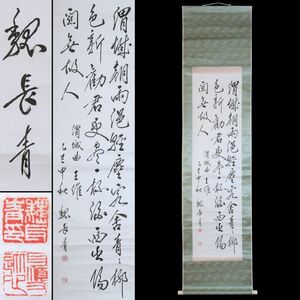 魏長青
渭城朝雨浥輕塵客舍青柳
色新勸君更盡一杯酒西出陽
關無故人
渭城曲 王維
乙丑中秋 魏長青
渭城朝雨浥輕塵客舍青柳
色新勸君更盡一杯酒西出陽
關無故人
渭城曲 王維
乙丑中秋 魏長青